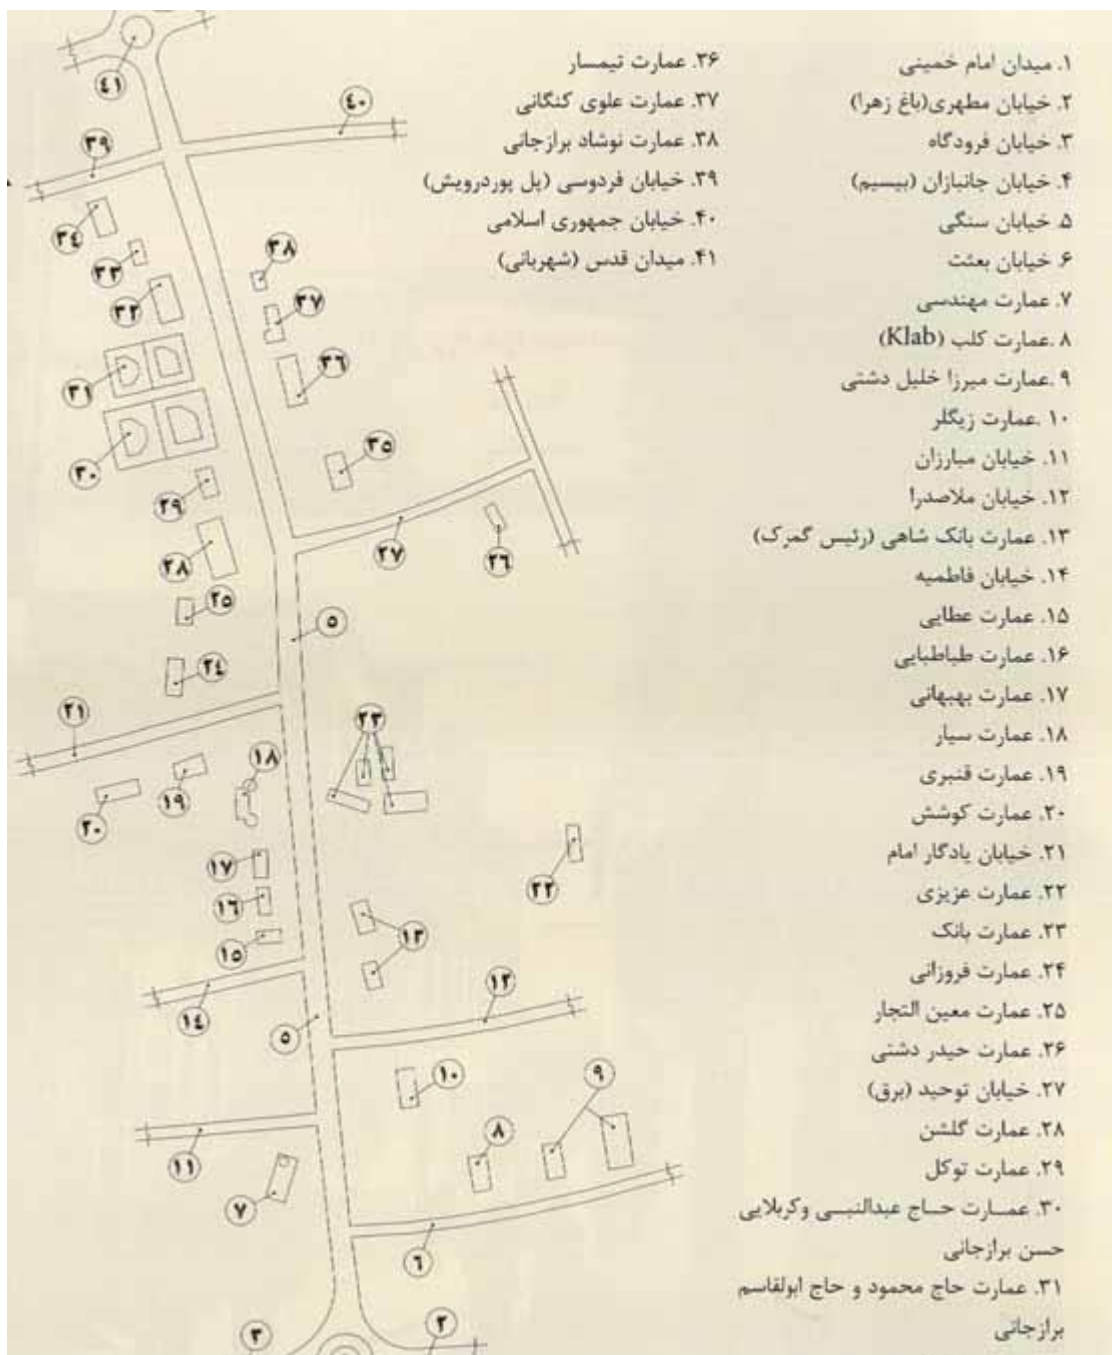 ۱. میدان امام خمینی
۲. خیابان مطهری(باغ زهرا)
۳. خیابان فرودگاه
۴. خیابان جانبازان (بیسیم)
۵. خیابان سنگی
۶. خیابان بعثت
۷. عمارت مهندسی
۸ .عمارت کلب (Klab)
۹ .عمارت میرزا خلیل دشتی
۱۰ .عمارت زیگلر
۱۱. خیابان مبارزان
۱۲. خیابان ملاصدرا
۱۳. عمارت بانک شاهی (رئیس گمرک)
۱۴. خیابان فاطمیه
۱۵. عمارت عطایی
۱۶. عمارت طباطبایی
۱۷. عمارت بهبهانی
۱۸. عمارت سیار
۱۹. عمارت قنبری
۲۰. عمارت کوشش
۲۱. خیابان یادگار امام
۲۲. عمارت عزیزی
۲۳. عمارت بانک
۲۴. عمارت فروزانی
۲۵. عمارت معین التجار
۲۶. عمارت حیدر دشتی
۲۷. خیابان توحید (برق)
۲۸. عمارت گلشن
۲۹. عمارت توکل
۳۰. عمــارت حــاج عبدالنبــی وکربلایی
حسن برازجانی
۳۱. عمارت حاج محمود و حاج ابولقاسم
برازجانی
۳۶. عمارت تیمسار
۳۷. عمارت علوی کنگانی
۳۸. عمارت نوشاد برازجانی
۳۹. خیابان فردوسی (پل پوردرویش)
۴۰. خیابان جمهوری اسلامی
۴۱. میدان قدس (شهربانی)
۴۱
۴۰
۳۹
۳۴
۳۳
۳۸
۳۲
۳۷
۳۱
۳۶
۳۰
۳۵
۲۹
۲۸
۲۷
۲۶
۲۵
۵
۲۴
۲۱
۲۳
۱۸
۱۹
۲۰
۱۷
۲۲
۱۶
۱۳
۱۵
۱۲
۱۴
۵
۱۰
۹
۸
۱۱
۷
۶
۳
۲